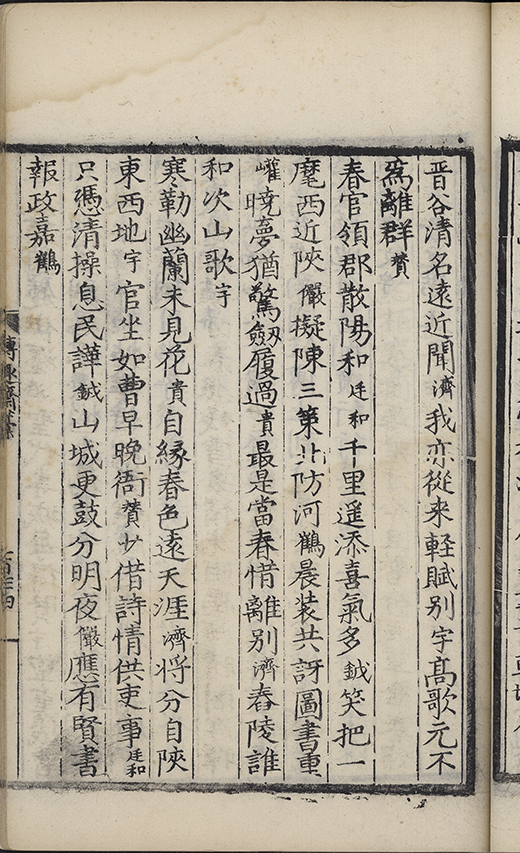 晋谷清名遠近聞濟我亦從来輕賦别宇髙歌元不
爲離群贊
春官領郡散陽和廷和千里遥添喜氣多鉞笑把一
麾西近陜儼擬陳三策北防河鶴晨装共訝圖書重
巏曉夢猶驚劔履過貴最是當春惜離别濟舂陵誰
和次山歌宇
寒勒幽蘭未見花貴自縁春色遠天涯濟将分自陜
東西地宇官坐如曹早晚衙贊少借詩情供吏事廷和
只憑清操息民譁鉞山城更鼓分明夜儼應有賢書
報政嘉鶴